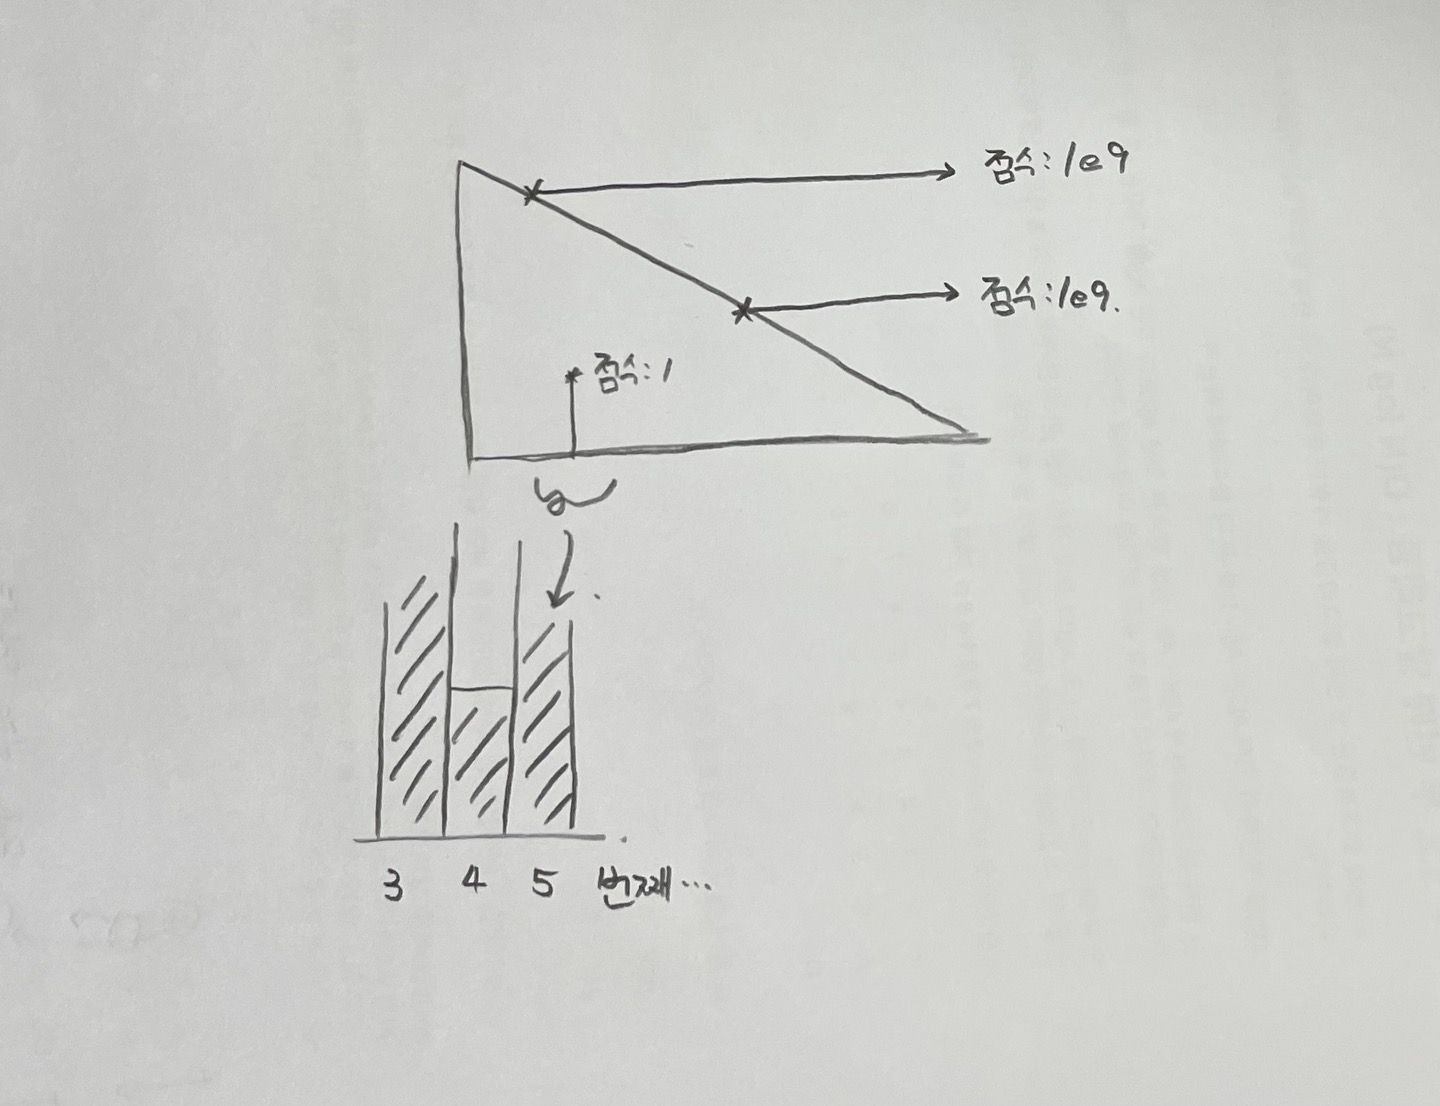 점수:1e9
점수:1e9.
점수:1
3 4 5 번째...